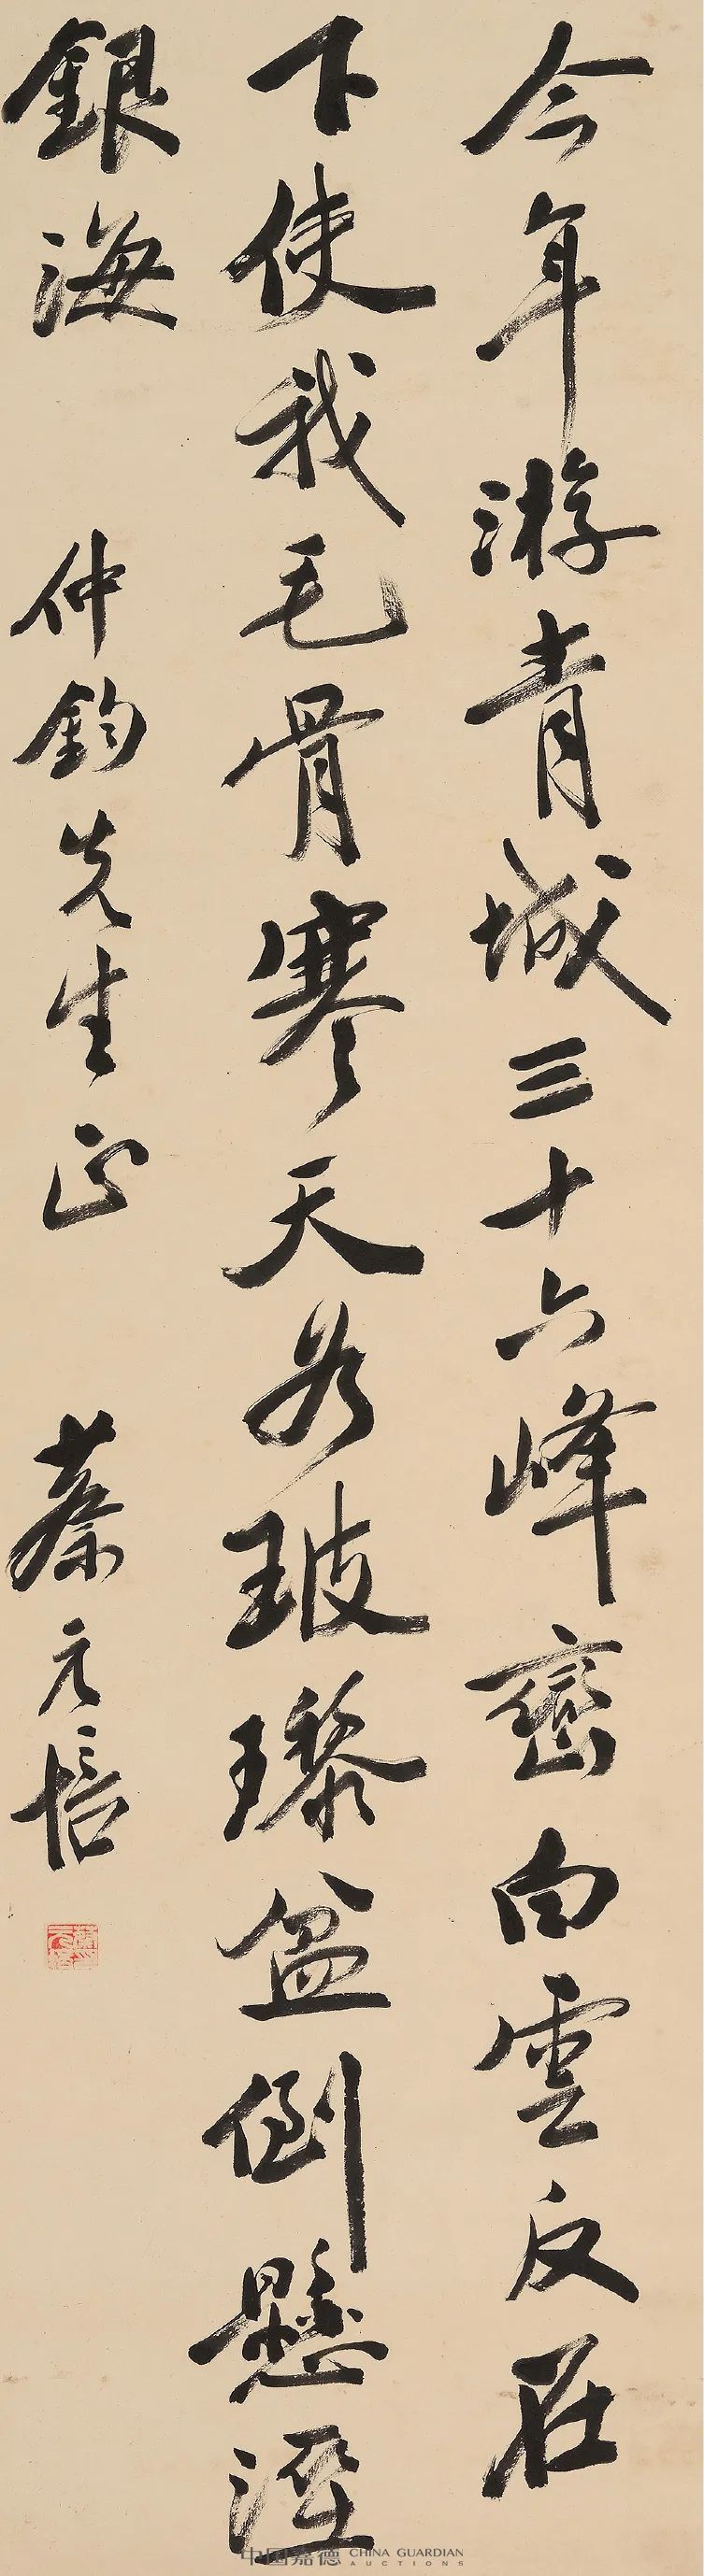 今年游青城三十六峰巒白雲反在
下使我毛骨寒天為玻瓈盆倒懸溼
銀海 仲鈞先生正 蔡元培
中国嘉德 CHINA GUARDIAN
AUCTIONS